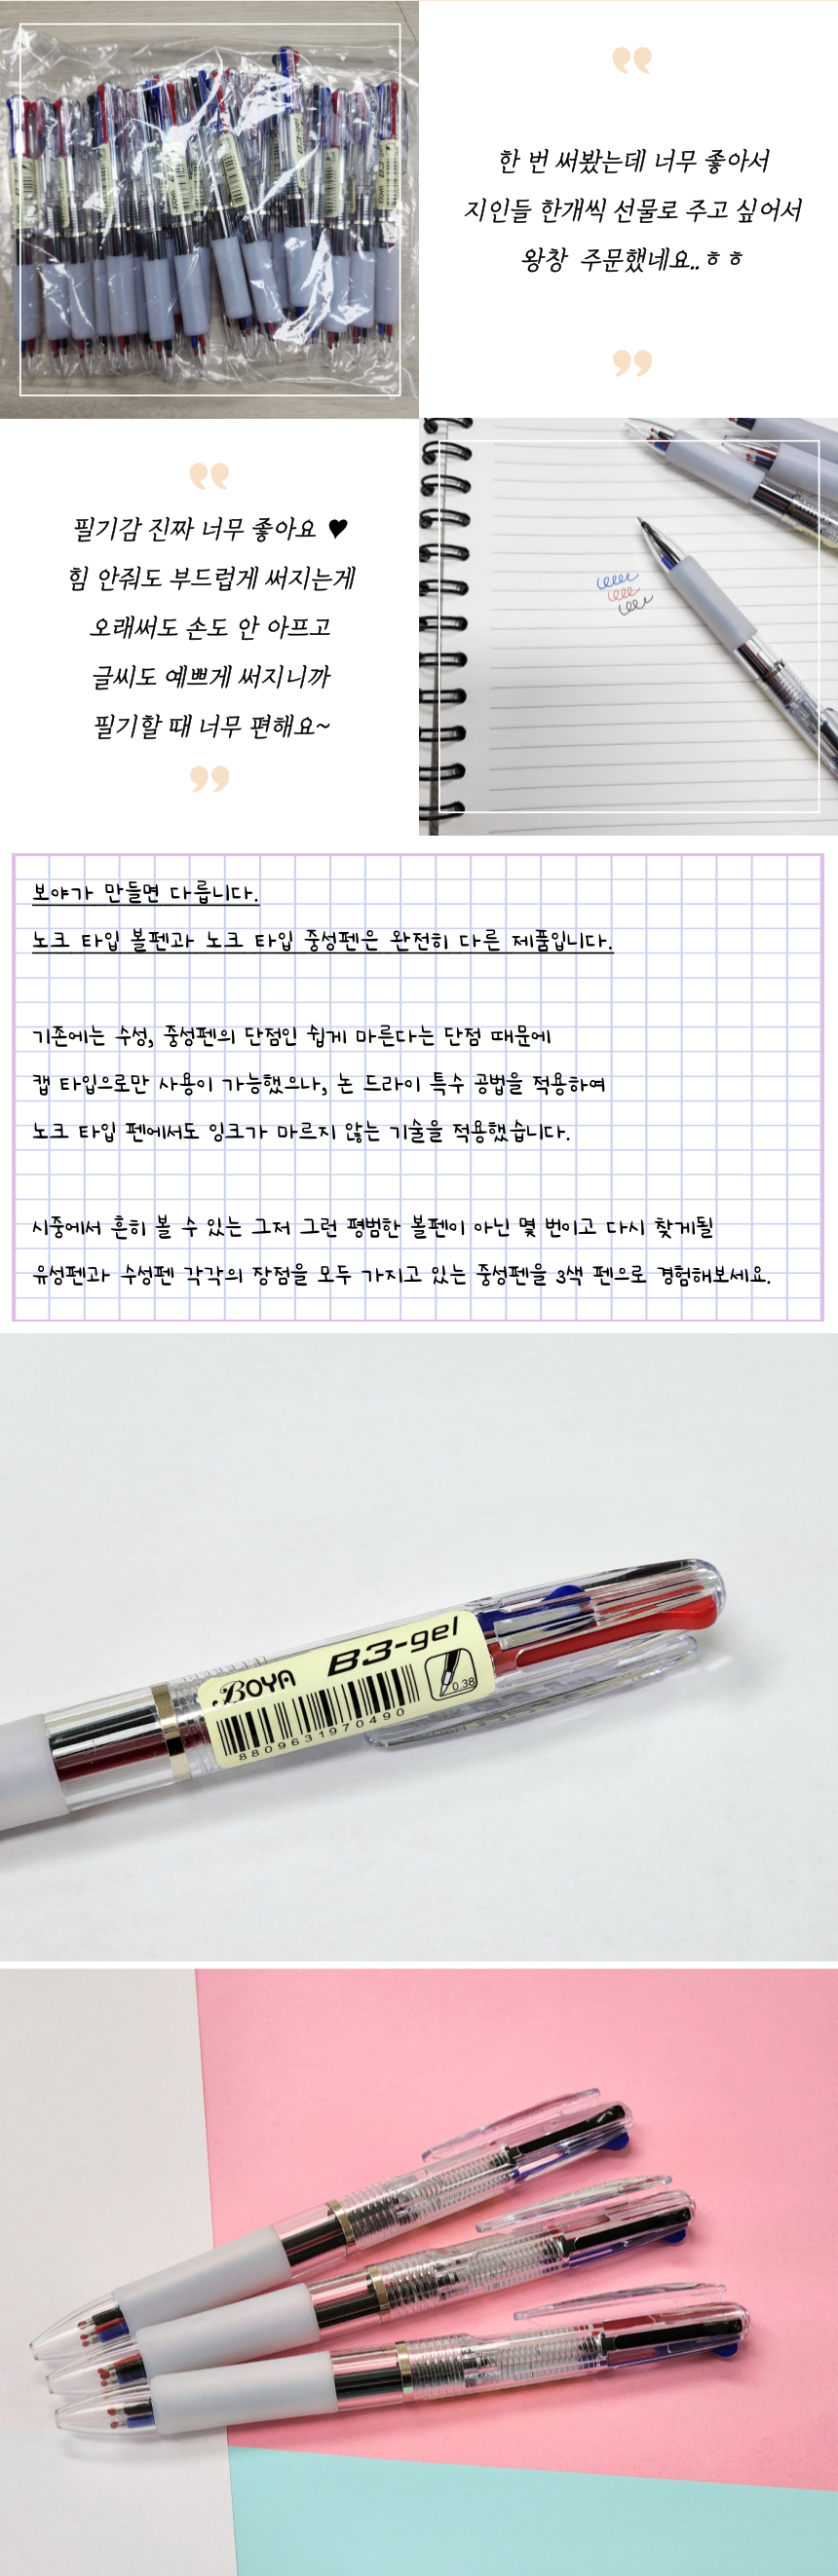 한 번 써봤는데 너무 좋아서
지인들 한개씩 선물로 주고 싶어서
왕창 주문했네요..ㅎㅎ
필기감 진짜 너무 좋아요 ♥
힘 안줘도 부드럽게 써지는게
오래써도 손도 안 아프고
글씨도 예쁘게 써지니까
필기할 때 너무 편해요~
보야가 만들면 다릅니다.
노크 타입 볼펜과 노크 타입 중성펜은 완전히 다른 제품입니다.
기존에는 수성, 중성펜의 단점인 쉽게 마른다는 단점 때문에
캡 타입으로만 사용이 가능했으나, 논 드라이 특수 공법을 적용하여
노크 타입 펜에서도 잉크가 마르지 않는 기술을 적용했습니다.
시중에서 흔히 볼 수 있는 그저 그런 평범한 볼펜이 아닌 몇 번이고 다시 찾게될
유성펜과 수성펜 각각의 장점을 모두 가지고 있는 중성펜을 3색 펜으로 경험해보세요.
BOYA B3-gel
0.38
8809631970490